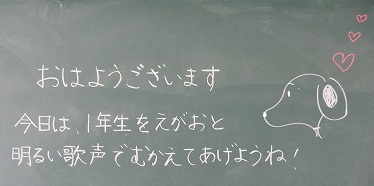 おはようございます
今日は、1年生をえがおと
明るい歌声でむかえてあげようね!